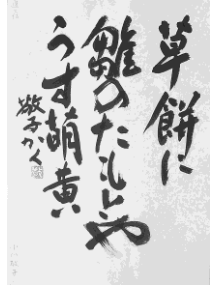 草餅に
雛のたもとや
うす萌黄
子かく